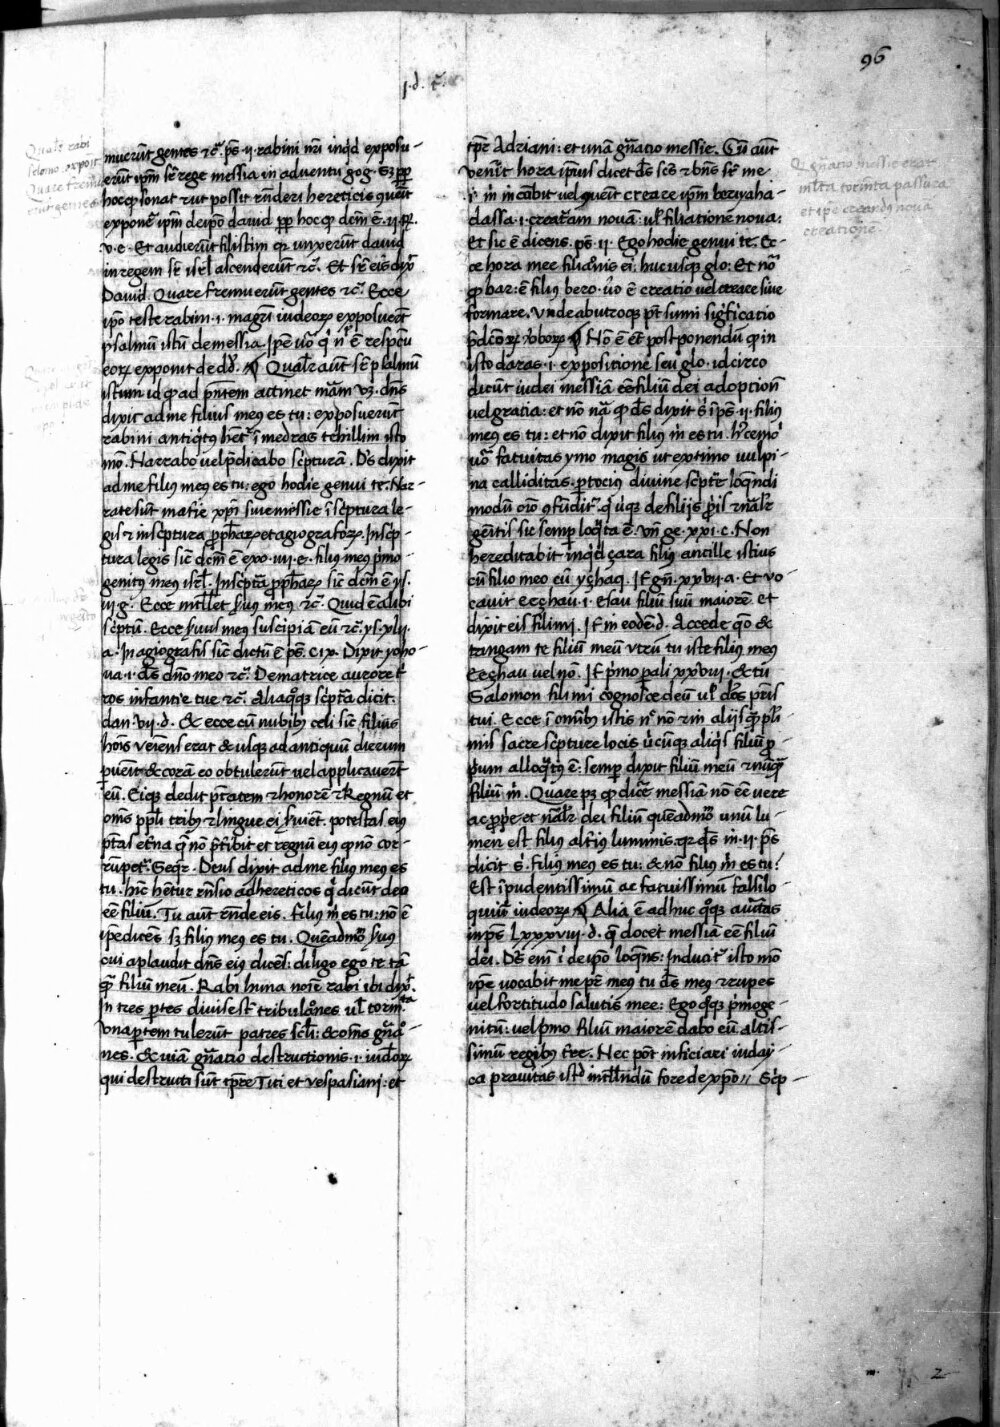 96
j. d. c̄.
Qualr̄ rabi
selomo exponit
Quare fremu
erūt gentes
muerūt gentes ⁊c̄. ps̄. ij. rabini nr̄i inqd exposu-
erūt ip̄m sr̄ rege messia in adventu gog. Sz ꝓp
hoc qd sonat ⁊ ut possit rn̄deri hereticis q̄uenit
exponē ip̄m de ip̄o david ꝓp hoc qd dc̄m ē. ij. r̄.
v. e. Et audierūt filistim qr̄ unxerūt david
in regem sr̄ isrl̄ ascenderūt ⁊c̄. Et sr̄ eis dix̄
David. Quare fremuerūt gentes ⁊c̄. Ecce
ip̄o teste rabini .i. magr̄i iudeoꝝ exposuerūt
psalmū istū de messia. Ip̄e v̄o q̇ n̄r ē respcū
eoꝝ exponit de dd̄. Qualr̄ aūt sr̄ psalmū
istum id qd ad pn̄tem attinet mām vz. dn̄s
dixit ad me filius meus es tu: exposuerūt
rabini antiqitꝰ hēt̄ ī medras tehillim isto
mō. Narrabo vel p̄dicabo sc̄pturā. Ds̄ dixit
ad me filiꝰ meꝰ es tu: ego hodie genui te. Nar-
rate sūt mat̄ie xp̄i sive messie ī sc̄ptura le-
gis ⁊ in sc̄ptura ꝓph̄aꝝ et agiografoꝝ. In sc̄p-
tura legis sic̄ dc̄m ē exo. iiij. e. filiꝰ meꝰ p̄mo-
genitꝰ meꝰ isrl̄. In sc̄pta ꝓph̄aꝝ sic̄ dc̄m ē ys.
lij. g. Ecce intll̄et s̄vus meꝰ ⁊c̄. Quid ē alibi
sc̄ptū. Ecce s̄vus meꝰ suscipiā eū ⁊c̄. ys. xlij.
a. In agiografis sic̄ dictū ē ps̄. cix. Dixit yoho-
va .i. ds̄ dn̄o meo ⁊c̄. De matrice aurore t̄
ros infantie tue ⁊c̄. Aliaqꝫ sc̄pta dicit.
dan. vij. d. & ecce cū nubibꝰ celi sic̄ filius
hoīs veiens erat & usqꝫ ad antiquū dierum
pvenit & corā eo obtulerūt vel applicaverūt
eū. Eiqꝫ dedit p̄tatem ⁊ honorē ⁊ Regnū et
om̄s ppl̄i tribꝰ ⁊ lingue ei s̄vient. potestas eiꝰ
p̄tas et̄na q̄ nō p̄t̄ibit et regnū eiꝰ qd nō cor-
rūpet̄. Seqr̄. Deus dixit ad me filiꝰ meꝰ es
tu. hic̄ hētur rn̄sio ad hereticos q̇ dicūt deo
eē filiū. Tu aūt rn̄de eis. filiꝰ m̄ es tu: nō ē
ip̄e dicēs sz filiꝰ meꝰ es tu. Quēadmō s̄vus
cui aplaudit dn̄s eiꝰ dicēs: diligo ego te tā
q̄ filium meū. Rabi huna noīe rabi ibi dix̄.
In tres p̄tes divise sūt tribul̄ones vl̄ torm̄ta.
Una p̄tem tulerūt patres scl̄i: & om̄s gn̄ao-
nes. & unā gn̄atio destructionis .i. iudeoꝝ
qui destructi sūt tp̄re Titi et vespasiani: et
tp̄r̄ Adriani: et unā gn̄atio messie. Cū aūt
venit̄ hora ip̄iꝰ dicet ds̄ sc̄s ⁊ bn̄s sr̄ me
.i. m̄ incūbit vel q̄uenit creare ip̄m beriyaha
dassa .i. creat̄am novā: vl̄ filiatione nova:
Et sic ē dicens. ps̄. ij. Ego hodie genui te. Ec-
ce hora mee filiaōnis ei: huc usqꝫ glo: Et nō
ꝓ bar: ē filiꝰ bero. v̄o ē creatio vel creare sive
formare. Unde ab utroqꝫ p̄t sumi sigficatio
p̄dc̄oꝝ v̄boꝝ. Nō ē et̄ postponendū qd in
isto daras .i. expositione seu glo. idcirco
dicūt iudei messiā eē filiū dei adoption̄
vel gratia: et nō nā qd ds̄ dixit s̄ ī ps̄. ij. filiꝰ
meꝰ es tu: et nō dixit filiꝰ m̄ es tu.
v̄a fatuitas ymo magis ut extimo vulpi-
na calliditas. p̄tociꝰ divine sc̄pt̄e loq̄ndi
modū oīō q̄fūdit̄. q̇ ūqꝫ de filijs ꝓ̄is ⁊ nalr̄
geīitis sic semꝑ loq̄ta ē. Un̄ ge. xxi. c. Non
hereditabit inqd çara filiꝰ ancille istius
cū filio meo eū yçhaq. It̄ gn̄. xxvij. a. Et vo-
cavit eçhau .i. esau filiū suū maiorē et
dixit ei: fili mi. It̄ in eodē. d. Accede q̄o &
tangam te filium meū utrū tu iste filiꝰ meꝰ
eçhau vel nō. It̄ p̄mo pali xxviij. & tu
Salomon fili mi cognosce deū vl̄ dōs p̄ris
tui. Ecce ī om̄ibꝰ istis nc̄ nō ⁊ in alijs q̄ plr̄i-
mis sacre sc̄pture locis ūcūqꝫ aliq̇s filiū ꝓ-
p̄um alloq̄tꝰ ē: semꝑ dixit filiū meū ⁊ nūq̄
filiū m̄. Quare pꝫ qd dic̄e messiā nō eē vere
ac ꝓp̄e et nalr̄ dei filiū quēadmō unū lu-
men est filiꝰ alt̄iꝰ luminis. qr qd̄s in. ij. ps̄
dicit s̄. filiꝰ meꝰ es tu: & nō filiꝰ m̄ es tu:
Est īpudentissimū ac fatuissimū falsilo-
quiū iudeoꝝ. Alia ē adhuc q̄qꝫ auc̄tas
in ps̄. lxxxviij. d. q̄ docet messiā eē filiū
dei. Ds̄ eni ī de ip̄o loq̄ns: inducit̄ isto mō
ip̄e vocabit me pr̄ meꝰ tu ds̄ meꝰ ⁊ rupes
vel fortitudo salutis mee: Ego q̄qꝫ p̄moge-
nitū: vel p̄mo filiū maiorē dabo eū altis-
simū regibꝰ t̄re. Nec pōt inficiari iuday-
ca pravitas istd intll̄indū fore de xp̄o // Sc̄p-
Q. gn̄atio messie erat
mlta tormta passura
et ip̄e creandꝰ nova
creatione.
2